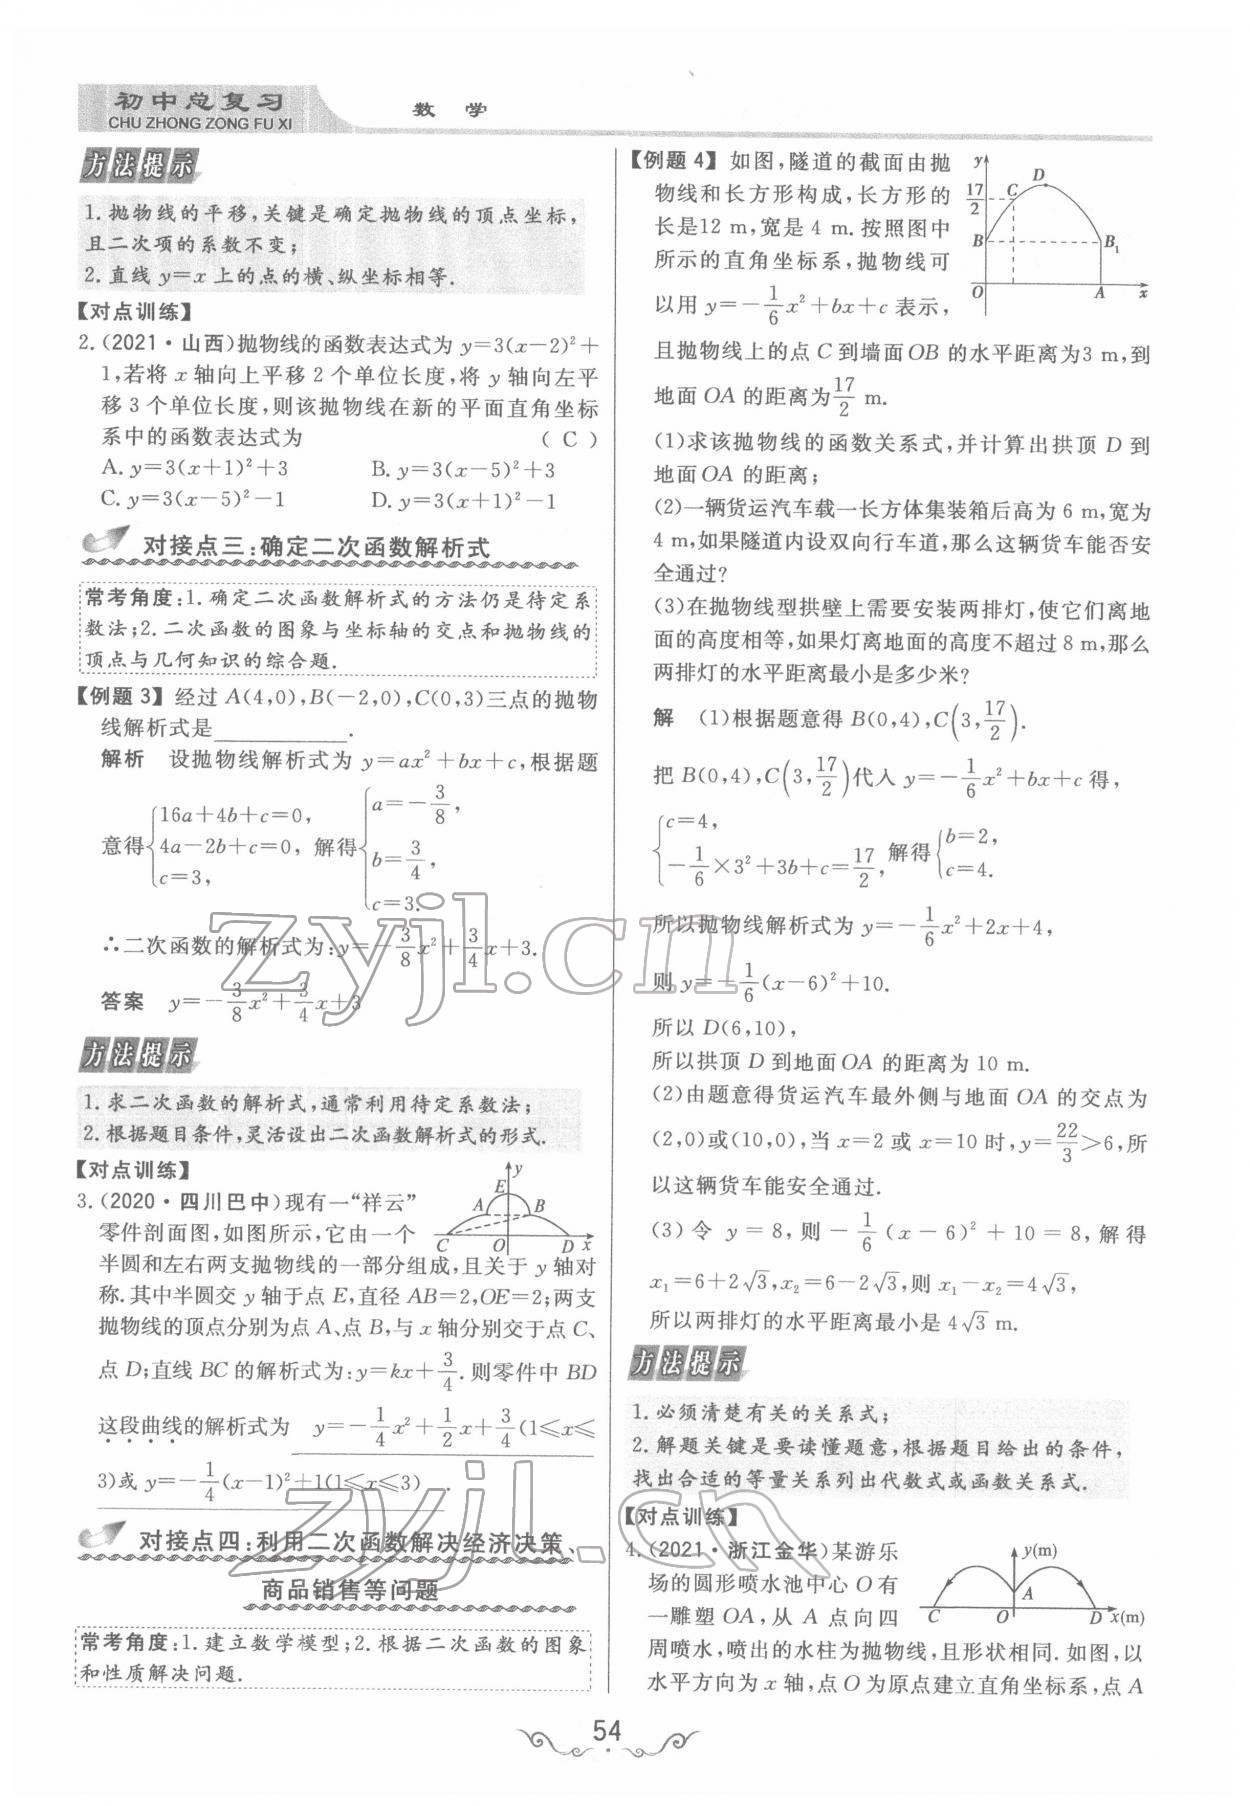 初中总复习
CHU ZHONG ZONG FU XI
数 学
方法提示
1.抛物线的平移,关键是确定抛物线的顶点坐标,
且二次项的系数不变;
2.直线 y=x 上的点的横、纵坐标相等.
【对点训练】
2.(2021·山西)抛物线的函数表达式为 y=3(x-2)²+
1,若将 x 轴向上平移 2 个单位长度,将 y 轴向左平
移 3 个单位长度,则该抛物线在新的平面直角坐标
系中的函数表达式为 ( C )
A.y=3(x+1)²+3 B.y=3(x-5)²+3
C.y=3(x-5)²-1 D.y=3(x+1)²-1
对接点三:确定二次函数解析式
常考角度:1.确定二次函数解析式的方法仍是待定系
数法;2.二次函数的图象与坐标轴的交点和抛物线的
顶点与几何知识的综合题.
【例题 3】 经过 A(4,0),B(-2,0),C(0,3)三点的抛物
线解析式是__________.
解析 设抛物线解析式为 y=ax²+bx+c,根据题
意得{16a+4b+c=0, 4a-2b+c=0, c=3, 解得{a=-3/8, b=3/4, c=3.
∴二次函数的解析式为:y=-3/8x²+3/4x+3.
答案 y=-3/8x²+3/4x+3
方法提示
1.求二次函数的解析式,通常利用待定系数法;
2.根据题目条件,灵活设出二次函数解析式的形式.
【对点训练】
3.(2020·四川巴中)现有一“祥云”
零件剖面图,如图所示,它由一个
半圆和左右两支抛物线的一部分组成,且关于 y 轴对
称.其中半圆交 y 轴于点 E,直径 AB=2,OE=2;两支
抛物线的顶点分别为点 A、点 B,与 x 轴分别交于点 C、
点 D;直线 BC 的解析式为:y=kx+3/4.则零件中 BD
这段曲线的解析式为 y=-1/4x²+1/2x+3/4(1≤x≤
3)或 y=-1/4(x-1)²+1(1≤x≤3) .
y
E
A B
C O D x
对接点四:利用二次函数解决经济决策、
商品销售等问题
常考角度:1.建立数学模型;2.根据二次函数的图象
和性质解决问题.
【例题 4】 如图,隧道的截面由抛
物线和长方形构成,长方形的
长是12 m,宽是 4 m.按照图中
所示的直角坐标系,抛物线可
以用 y=-1/6x²+bx+c 表示,
且抛物线上的点 C 到墙面 OB 的水平距离为3 m,到
地面 OA 的距离为17/2 m.
y
D
17/2 C
B B₁
O A x
(1)求该抛物线的函数关系式,并计算出拱顶 D 到
地面 OA 的距离;
(2)一辆货运汽车载一长方体集装箱后高为 6 m,宽为
4 m,如果隧道内设双向行车道,那么这辆货车能否安
全通过?
(3)在抛物线型拱壁上需要安装两排灯,使它们离地
面的高度相等,如果灯离地面的高度不超过 8 m,那么
两排灯的水平距离最小是多少米?
解 (1)根据题意得 B(0,4),C(3,17/2).
把 B(0,4),C(3,17/2)代入 y=-1/6x²+bx+c 得,
{c=4, -1/6×3²+3b+c=17/2, 解得{b=2, c=4.
所以抛物线解析式为 y=-1/6x²+2x+4,
则 y=-1/6(x-6)²+10.
所以 D(6,10),
所以拱顶 D 到地面 OA 的距离为 10 m.
(2)由题意得货运汽车最外侧与地面 OA 的交点为
(2,0)或(10,0),当 x=2 或 x=10 时,y=22/3>6,所
以这辆货车能安全通过.
(3)令 y=8,则 -1/6(x-6)²+10=8,解得
x₁=6+2√3,x₂=6-2√3,则 x₁-x₂=4√3,
所以两排灯的水平距离最小是 4√3 m.
方法提示
1.必须清楚有关的关系式;
2.解题关键是要读懂题意,根据题目给出的条件,
找出合适的等量关系列出代数式或函数关系式.
【对点训练】
4.(2021·浙江金华)某游乐
场的圆形喷水池中心 O 有
一雕塑 OA,从 A 点向四
周喷水,喷出的水柱为抛物线,且形状相同.如图,以
水平方向为 x 轴,点 O 为原点建立直角坐标系,点 A
y(m)
A
C O D x(m)
54
zyjl.cn
zyjl.cn